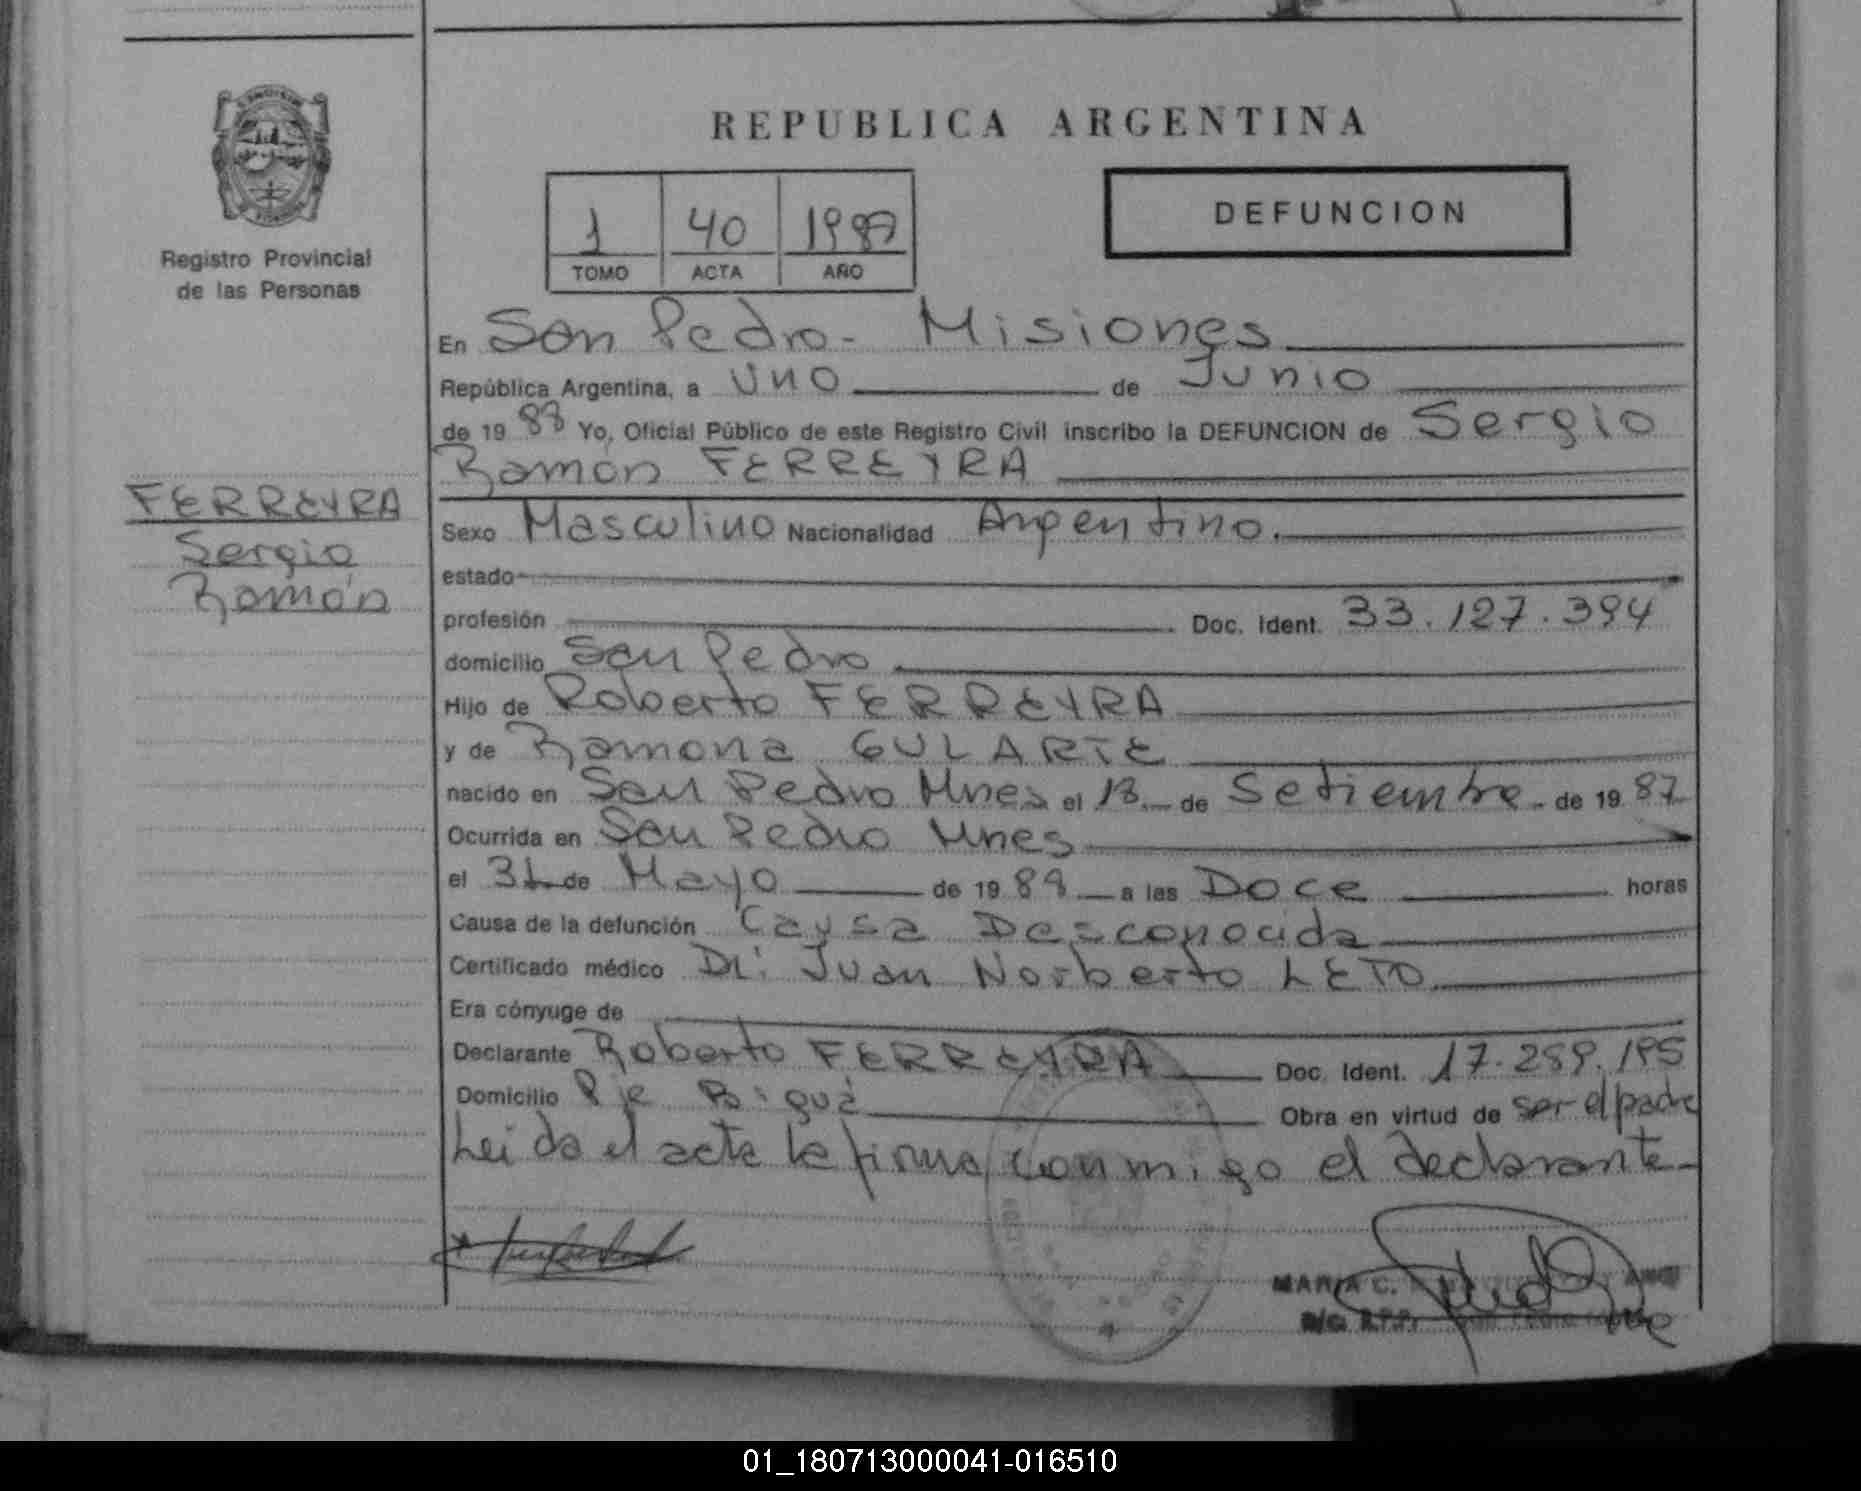 REPUBLICA ARGENTINA
1 40 1989
TOMO ACTA AÑO
DEFUNCION
Registro Provincial
de las Personas
En San Pedro - Misiones
República Argentina, a Uno de Junio
de 1989 Yo, Oficial Público de este Registro Civil inscribo la DEFUNCION de Sergio
Ramón FERREYRA
FERREYRA
Sergio
Ramón
Sexo Masculino Nacionalidad Argentino.
estado
profesión Doc. Ident. 33.127.394
domicilio San Pedro
Hijo de Roberto FERREYRA
y de Ramona GULARTE
nacido en San Pedro Mnes el 18 de Setiembre de 1987
Ocurrida en San Pedro Mnes
el 31 de Mayo de 1989 a las Doce horas
Causa de la defunción Causa Desconocida
Certificado médico Dr. Juan Norberto LETO
Era cónyuge de
Declarante Roberto FERREYRA Doc. Ident. 17.289.195
Domicilio Pje Obra en virtud de ser el padre
Leida el acta la firma conmigo el declarante
MARIA C.
01_180713000041-016510